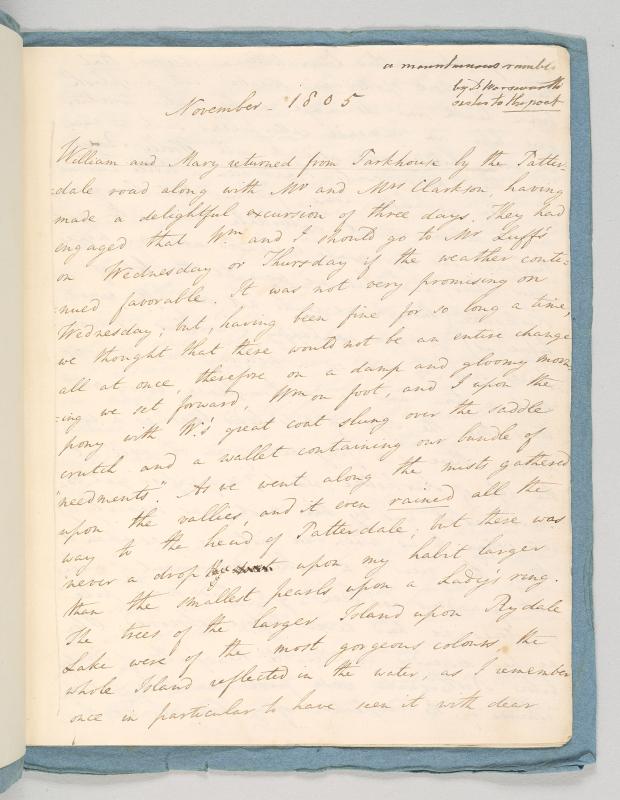 a mountainous ramble
by D Worsworth
sister to the poet
November - 1805
William and Mary returned from Parkhouse by the Patter-
-dale road along with Mr and Mrs Clarkson, having
made a delightful excursion of three days. They had
engaged that Wm and I should go to Mr Luff's
on Wednesday or Thursday if the weather conti=
=nued favorable. It was not very promising on
Wednesday; but, having been fine for so long a time,
we thought that there would not be an entire change
all at once, therefore on a damp and gloomy morn
=ing we set forward, Wm on foot, and I upon the
pony with W's great coat slung over the saddle
crutch and a wallet containing our bundle of
"needments". As we went along the mists gathered
upon the vallies, and it even rained all the
way to the head of Patterdale; but there was
never a drop upon my habit larger
than the smallest pearls upon a Lady's ring.
The trees of the larger Island upon Rydale
Lake were of the most gorgeous colours the
whole Island reflected in the water, as I remember
once in particular to have seen it with dear